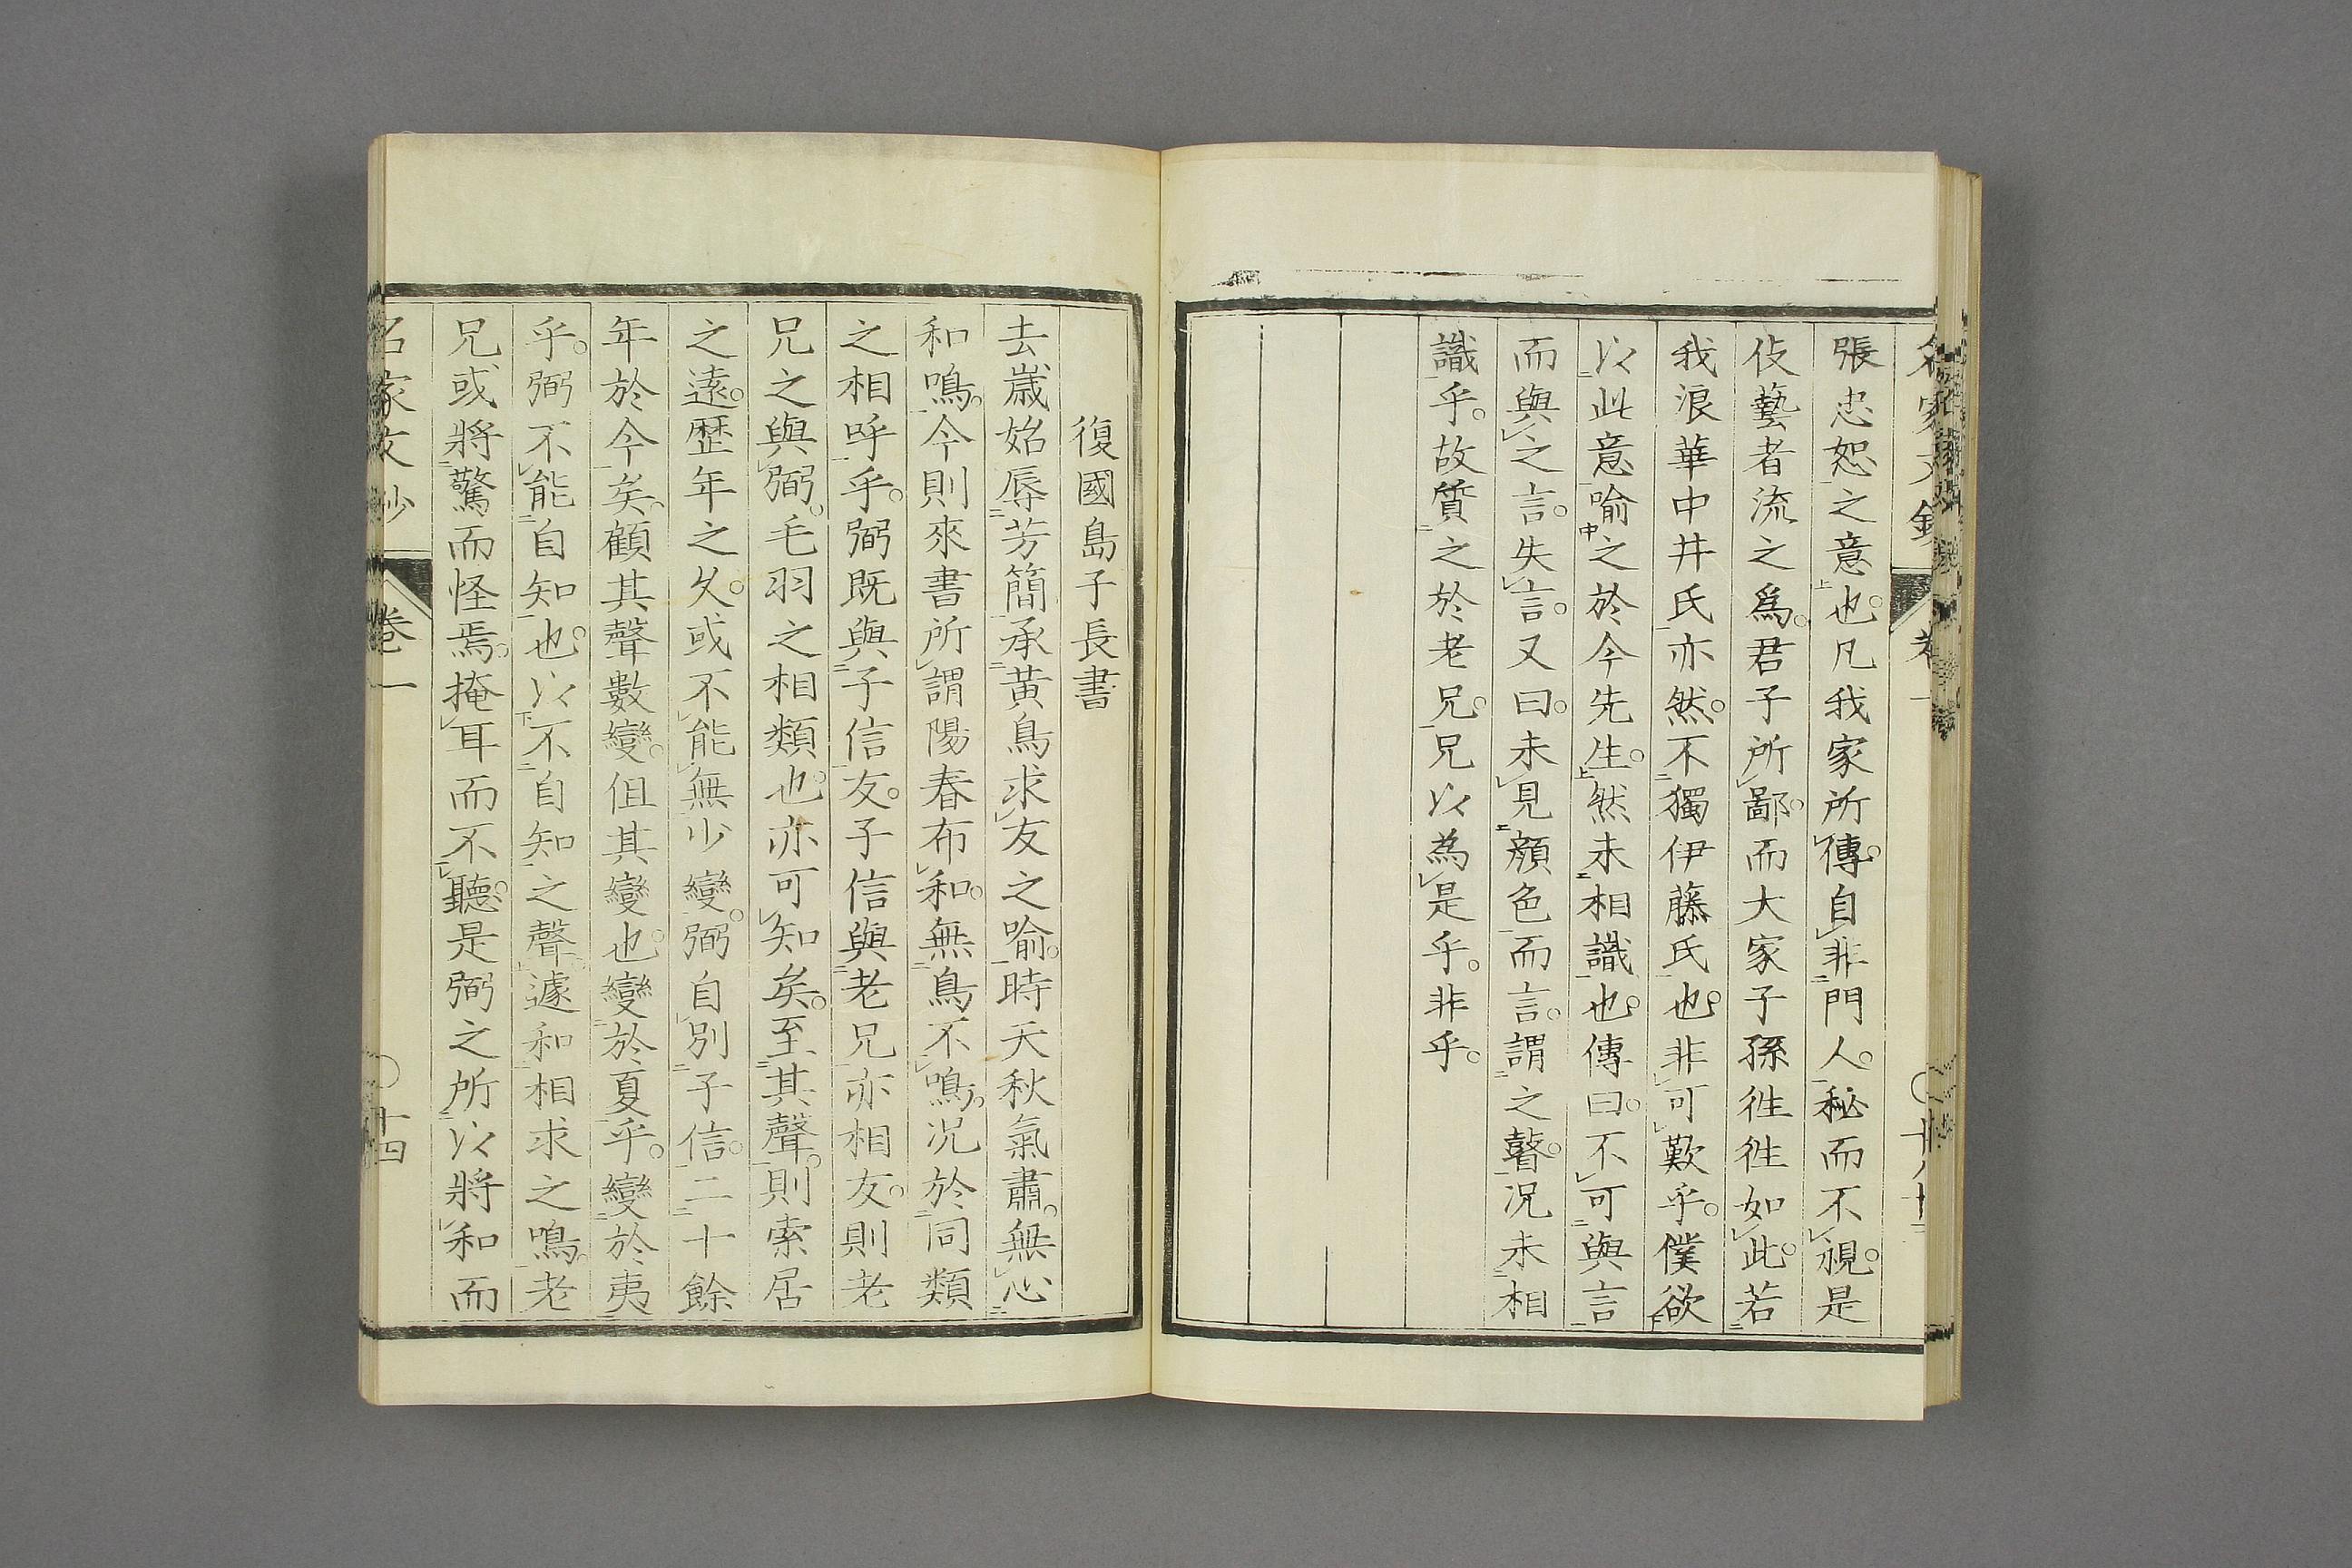 張忠恕之意也。凡我家所傳。自非門人。秘而不視。是
伎藝者流之爲。君子所鄙。而大家子孫徃徃如此。若
我浪華中井氏亦然。不獨伊藤氏也。非可歎乎。僕欲
以此意喻之於今先生。然未相識也。傳曰。不可與言
而與之言。失言。又曰。未見顏色而言。謂之瞽。况未相
識乎。故質之於老兄。兄以為是乎。非乎。
復國島子長書
去歲始辱芳簡。承黃鳥求友之喻。時天秋氣肅。無心
和鳴。今則來書所謂陽春布和。無鳥不鳴。况於同類
之相呼乎。弼既與子信友。子信與老兄亦相友。則老
兄之與弼。毛羽之相類也。亦可知矣。至其聲。則索居
之遠。歷年之久。或不能無少變。弼自別子信。二十餘
年於今矣。顧其聲數變。但其變也。變於夏乎。變於夷
乎。弼不能自知也。以不自知之聲。遽和相求之鳴。老
兄或將驚而怪焉。掩耳而不聽。是弼之所以將和而
名家文抄
卷一
十四